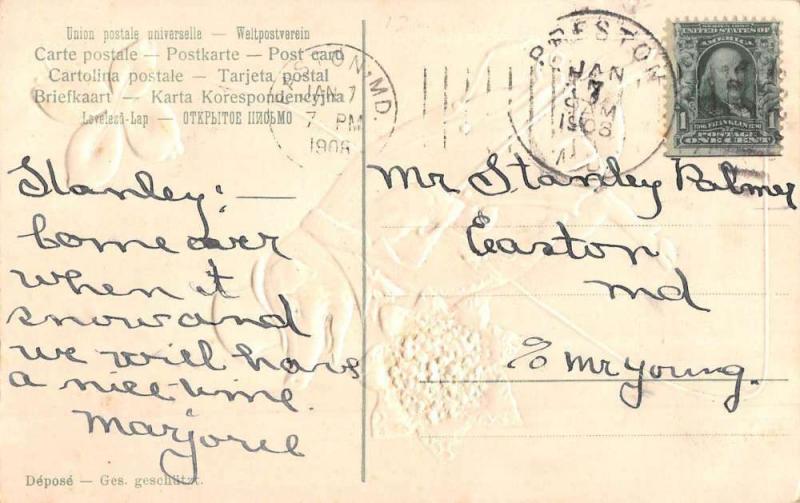 Union postale universelle — Weltpostverein
Carte postale — Postkarte — Post card
Cartolina postale — Tarjeta postal
Briefkaart — Karta Korespondencyjna
Levelezö-Lap — ОТКРЫТОЕ ПИСЬМО
EASTON, MD.
JAN 7
7 PM
1908
PRESTON
JAN
7
PM
1908
MD
UNITED STATES OF
AMERICA
1706 FRANKLIN 1790
POSTAGE
1 ONE CENT 1
Stanley: —
Come over
when it
snows and
we will have
a nice time.
Marjorie
Mr Stanley Palmer
Easton
Md
c/o Mr Young.
Déposé — Ges. geschützt.